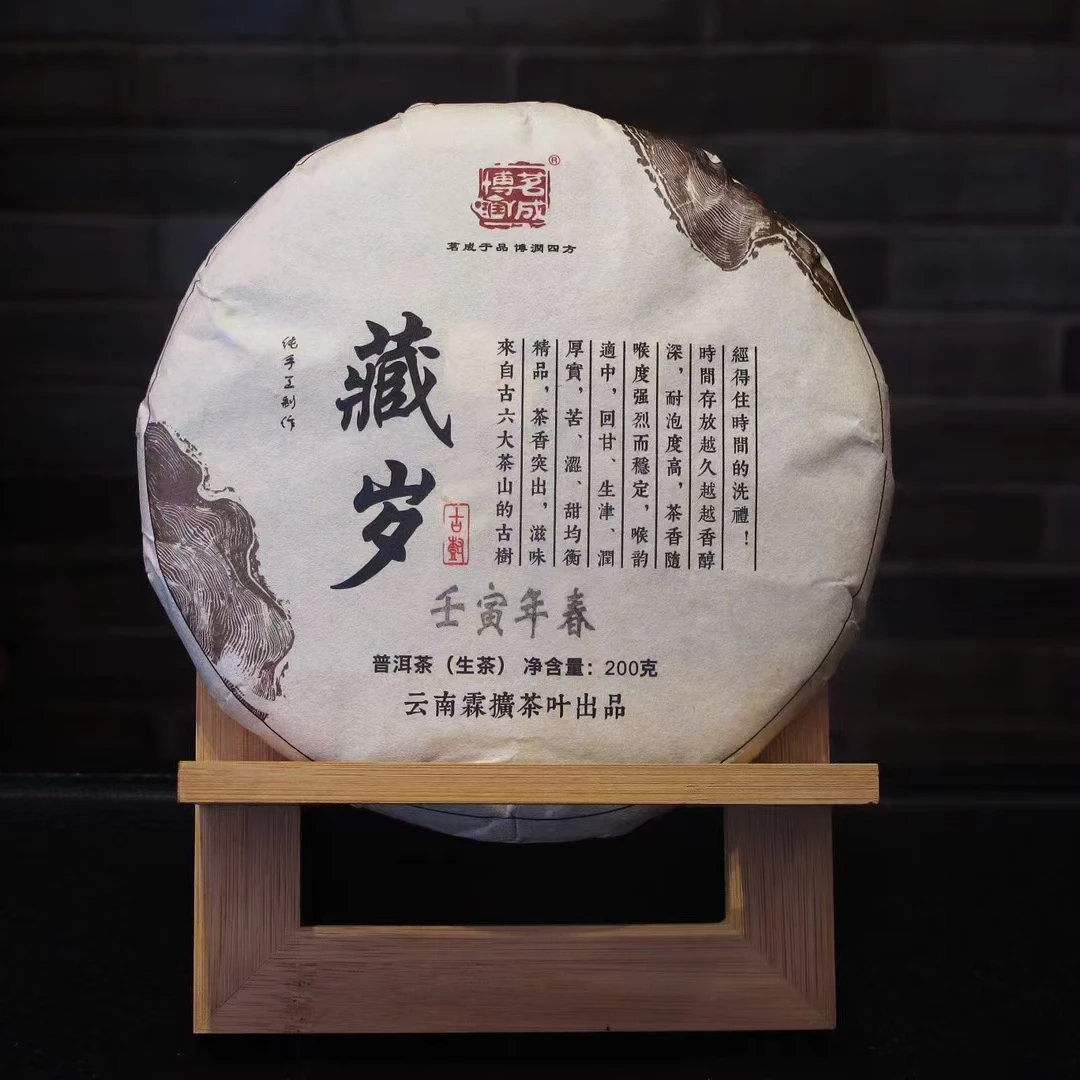 茗成
博润
®
茗成于品 博潤四方
纯手工制作
藏岁
來自古六大茶山的古樹
精品，茶香突出，滋味
厚實，苦、澀、甜均衡
適中，回甘、生津、潤
喉度强烈而穩定，喉韵
深，耐泡度高，茶香隨
時間存放越久越越香醇
經得住時間的洗禮！
壬寅年春
普洱茶（生茶） 净含量：200克
云南霖擴茶叶出品